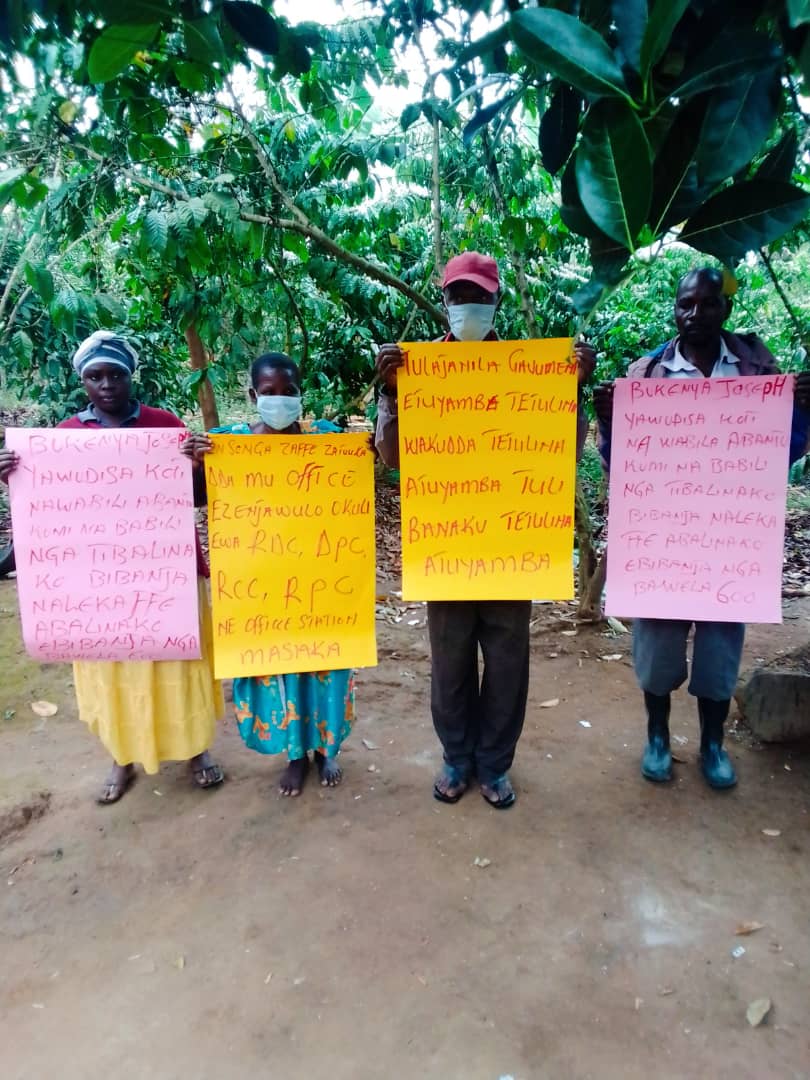 BUKENYA JOSEPH
YAWUDISA KOTI
NAWABILI ABANTU
KUMI NA BABILI
NGA TIBALINA
KO BIBANJA
NALEKA FFE
ABALINAKO
EBIBANJA NGA
BAWELA 600
ENSONGA ZAFFE ZATUUKA
DDA MU OFFICE
EZENJAWULO OKULI
EWA RDC, DPC,
RCC, RPC
NE OFFICE STATION
MASAKA
TULAJANILA GAVUMENT
ETUYAMBE TETULINA
WAKUDDA TETULINA
ATUYAMBA TULI
BANAKU TETULINA
ATUYAMBA
BUKENYA JOSEPH
YAWUDISA KOTI
NA WABILA ABANTU
KUMI NA BABILI
NGA TIBALINAKO
BIBANJA NALEKA
FFE ABALINAKO
EBIBANJA NGA
BAWELA 600